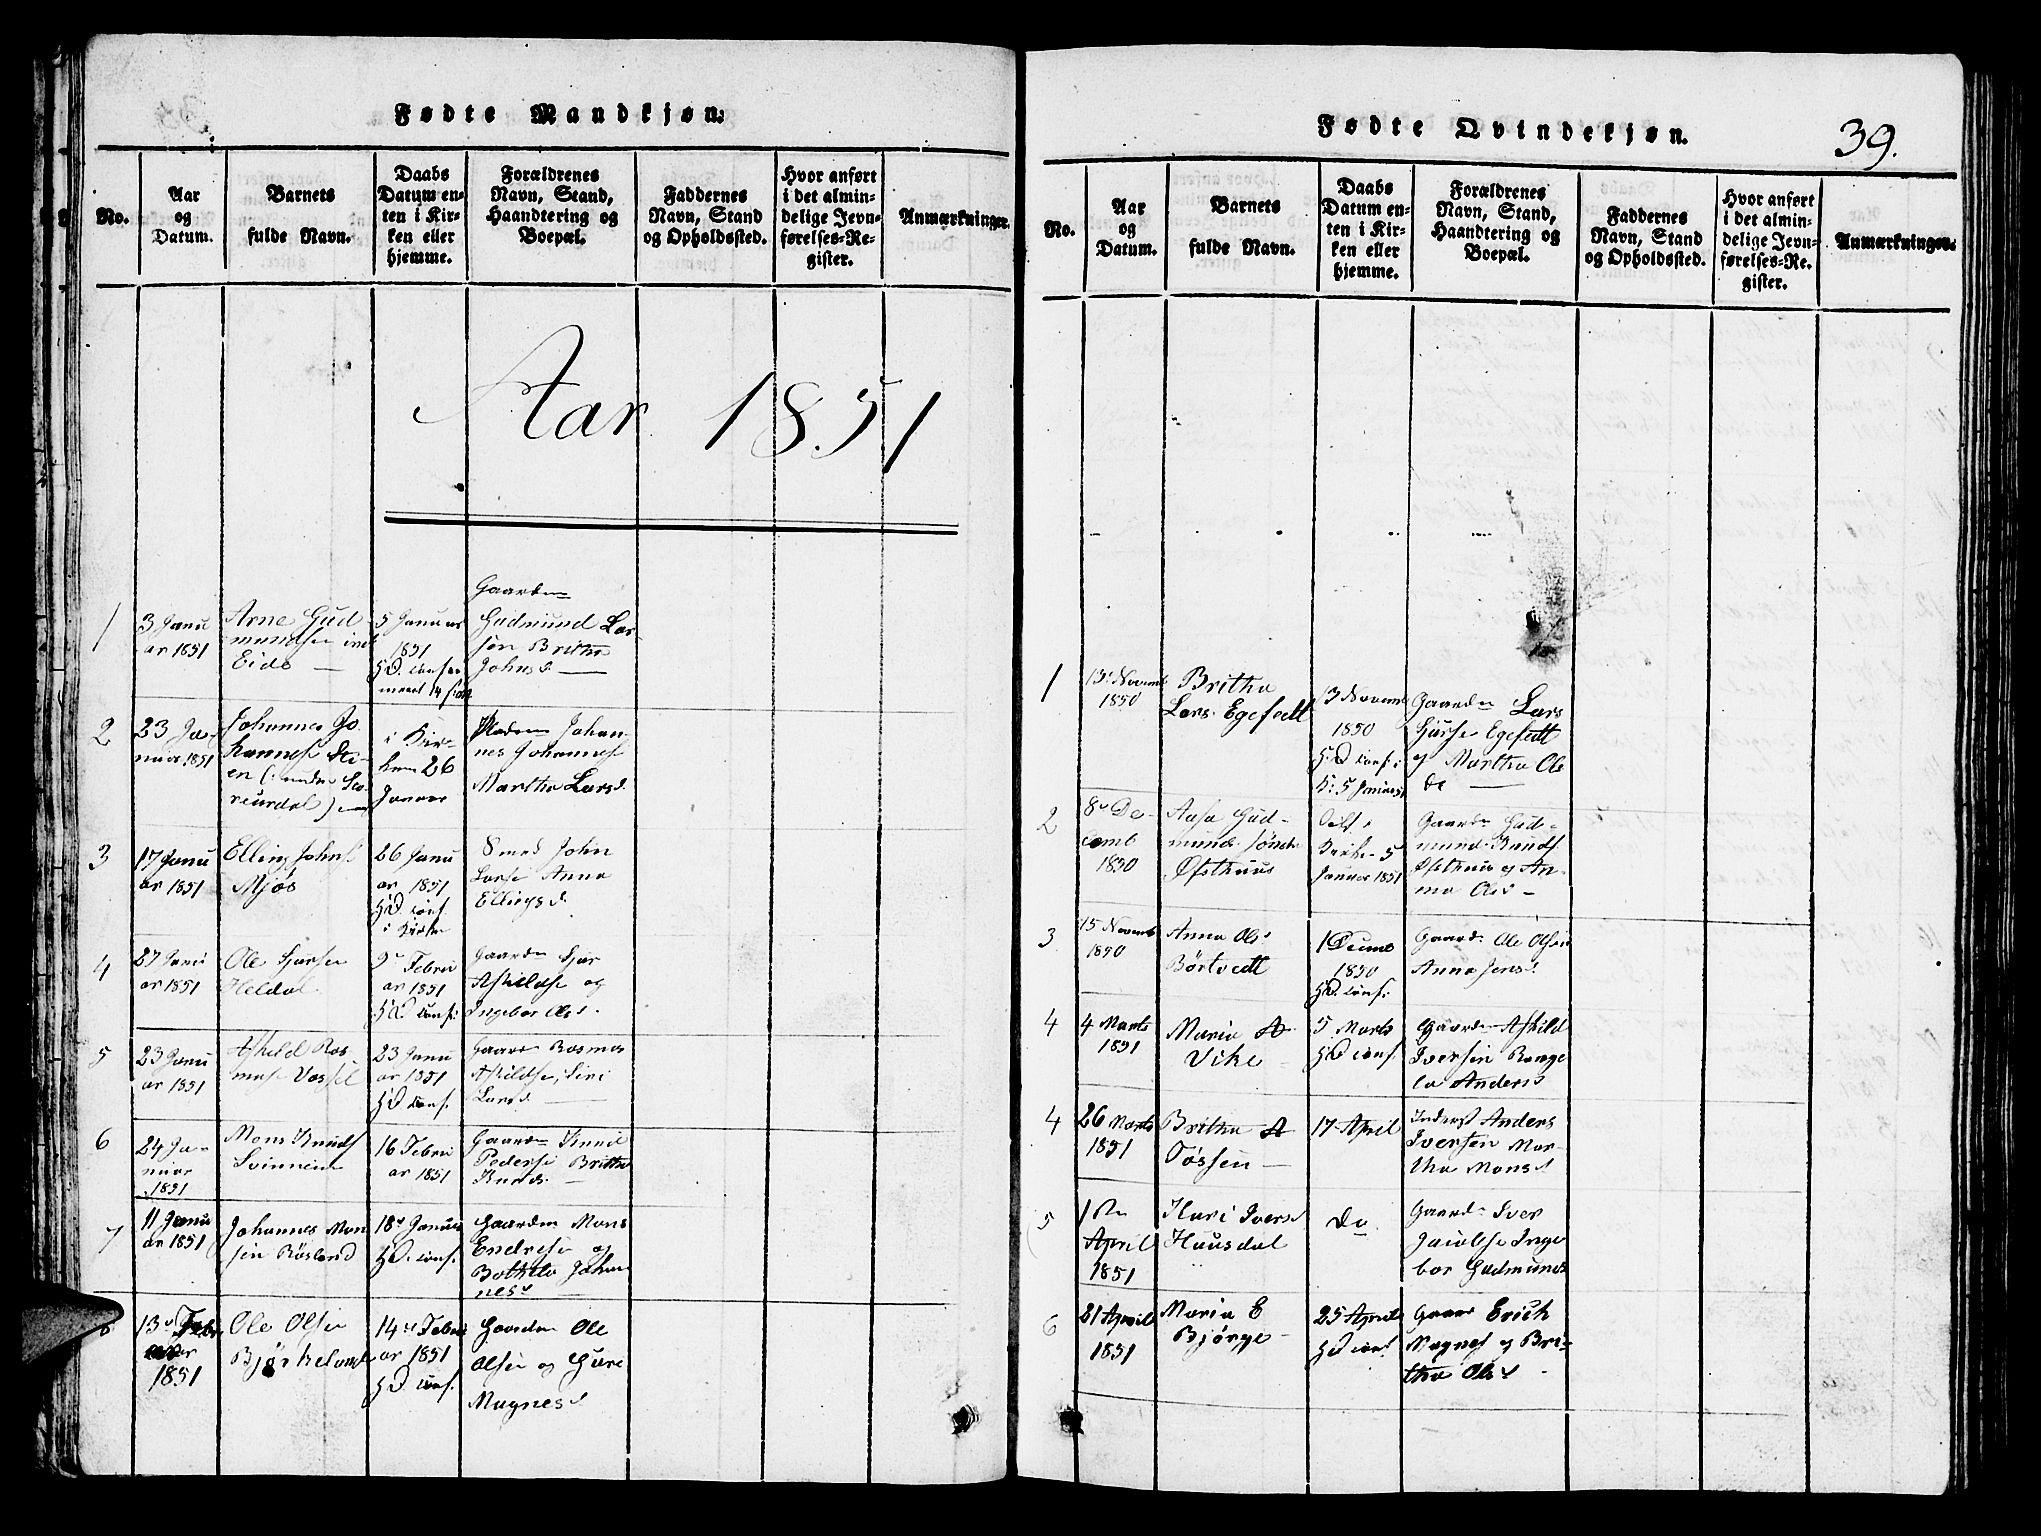 Fødte Mandkjøn.
No.
Aar
og
Datum.
Barnets
fulde Navn.
Daabs
Datum en-
ten i Kir-
ken eller
hjemme.
Forældrenes
Navn, Stand,
Haandtering og
Boepæl.
Faddernes
Navn, Stand
og Opholdssted.
Hvor anført
i det almin-
delige Jevn-
førelses-Re-
gister.
Anmærkninger.
Aar 1851
1
3 Janu
ar 1851
Arne Gud
mundsen
Eide
5 Januar
1851
Gaarden
Gudmund Lar-
sen Britha
Johnsd
2
23 Ja-
nuar 1851
Johannes Jo
hannes
i Kir-
ken 26
Januar
Johan-
nes Johannes
Martha Larsd.
3
17 Janu
ar 1851
Elling Johns
Mjøs
26 Janu
ar 1851
HD. conf.
i Kirken
Smed John
Larse Anna
Ellingsd.
4
27 Janu
ar 1851
Ole
Heldal
9 Febru
ar 1851
HD conf:
Gaardn
Askildse og
Ingebor Olsd.
5
23 Janu
ar 1851
Askild Ras-
mus
23 Janu
ar 1851
HD conf.
Gaard Rasmus
Askildse, Siri
Larsd.
6
24 Ja-
nuar
1851
Mons Knuds
16 Febru
ar 1851
Gaardn Knud
Pederse Britha
Knudsd.
7
11 Janu
ar 1851
Johannes Mon
sen Røsland
18 Januar
HD. conf.
Gaarden Mons
Endrese og
Bothilda Johan
nesd
8
13 Febr
uar
1851
Ole Olsen
14 Febru
ar 1851
HD conf.
Gaarden Ole
Olsen og Guro
Magnesd
Fødte Qvindekjøn.
39.
No.
Aar
og
Datum.
Barnets
fulde Navn.
Daabs
Datum en-
ten i Kir-
ken eller
hjemme.
Forældrenes
Navn, Stand,
Haandtering og
Boepæl.
Faddernes
Navn, Stand
og Opholdssted.
Hvor anført
i det almin-
delige Jevn-
førelses-Re-
gister.
Anmærkninger.
1
13 Novemb
1850
Britha
Lars. Egetvedt
13 Novemb
1850
HD conf:
K: 5 Januar 51
Gaardn Lars
og Martha Ols
de
2
8 De-
cemb
1850
Aasa Gud-
mund
Østhuus
Kirke 5
Januar 1851
Gaardn Gud-
mund Knuds
Østhuus og An-
na Olsd
3
15 Novemb
1850
Anna Ols
Børtvedt
1 Decemb
1850
HD. conf:
Gaardn Ole Olsen
Anna Jensd.
4
4 Marts
1851
Maria A
Vike
5 Marts
HD conf.
Gaardn Askild
Iversen
Andersd
4
26 Marts
1851
Britha A
Tøssen
17 April
Inderst Anders
Iversen Mar-
tha Monsd
5
1
April
1851
Kari Iversd
Hausdal
Do
Gaardn Iver
Jacobse Inge
bor Gudmundsd
6
21 April
1851
Maria E
Bjørge
25 April
HD conf.
Gaard Erich
Magnes og Bri-
tha Olsd